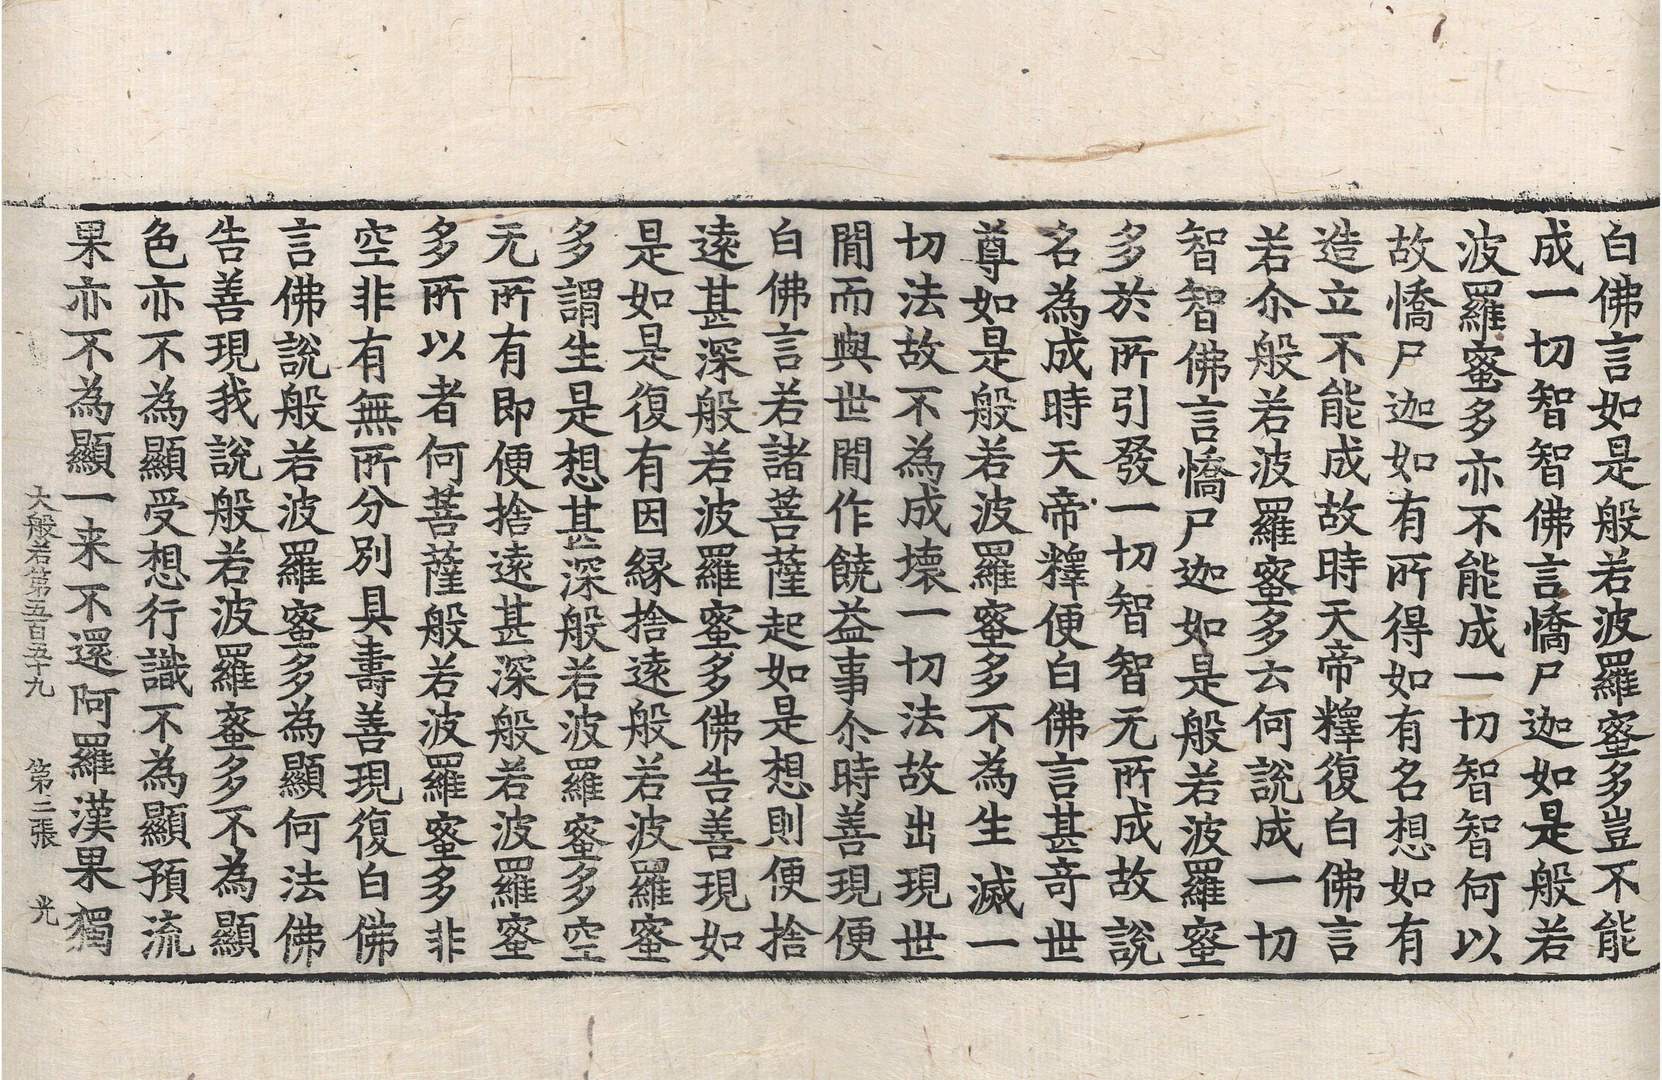 白佛言如是般若波羅蜜多豈不能
成一切智智佛言憍尸迦如是般若
波羅蜜多亦不能成一切智智何以
故憍尸迦如有所得如有名想如有
造立不能成故時天帝釋復白佛言
若尒般若波羅蜜多云何說成一切
智智佛言憍尸迦如是般若波羅蜜
多於所引發一切智智无所成故說
名為成時天帝釋便白佛言甚奇世
尊如是般若波羅蜜多不為生滅一
切法故不為成壞一切法故出現世
間而與世間作饒益事尒時善現便
白佛言若諸菩薩起如是想則便捨
遠甚深般若波羅蜜多佛告善現如
是如是復有因緣捨遠般若波羅蜜
多謂生是想甚深般若波羅蜜多空
无所有即便捨遠甚深般若波羅蜜
多所以者何菩薩般若波羅蜜多非
空非有無所分別具壽善現復白佛
言佛說般若波羅蜜多為顯何法佛
告善現我說般若波羅蜜多不為顯
色亦不為顯受想行識不為顯預流
果亦不為顯一来不還阿羅漢果獨
大般若第五百五十九 第三張 光